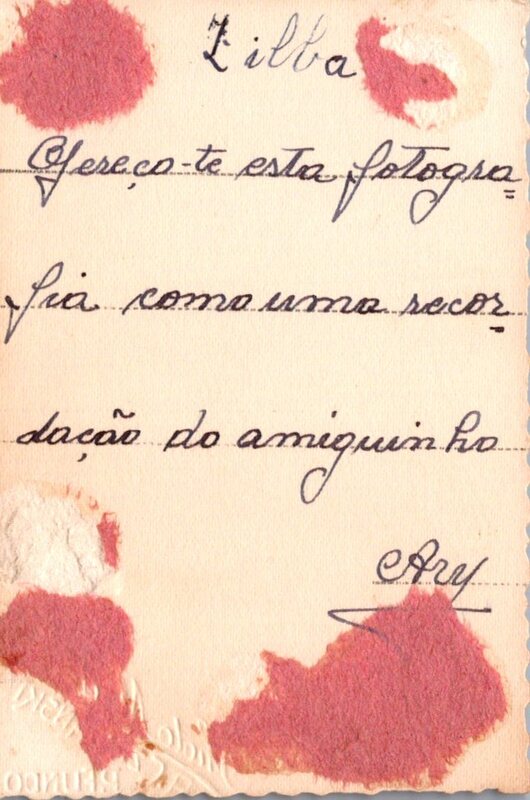 Zilba
Ofereço-te esta fotogra=
fia como uma recor=
dação do amiguinho
Ary